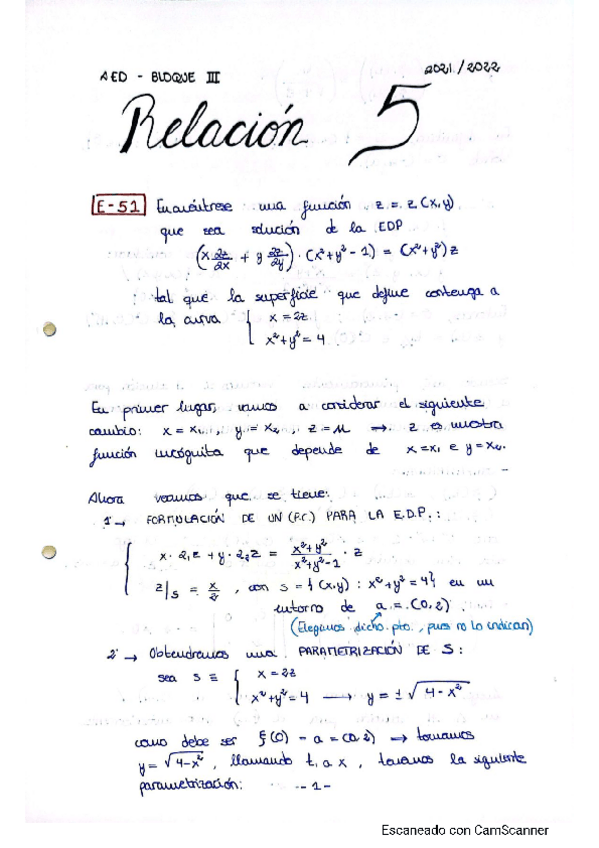 AED - BLOQUE III
2021/2022
Relación 5
E-51 Encuéntrese una función z = z(x,y)
que sea solución de la EDP
(x ∂z/∂x + y ∂z/∂y) · (x²+y²-1) = (x²+y²)z
tal que la superficie que define contenga a
la curva { x = 2z
x²+y² = 4
En primer lugar, vamos a considerar el siguiente
cambio: x = x₁, y = x₂, z = u → z es nuestra
función incógnita que depende de x = x₁ e y = x₂.
Ahora veamos que se tiene:
1º → FORMULACIÓN DE UN (P.C.) PARA LA E.D.P.:
{ x · ∂₁z + y · ∂₂z = (x²+y²)/(x²+y²-1) · z
z/s = x/2, con S = {(x,y) : x²+y² = 4} en un
entorno de a = (0,2)
(Elegimos dicho pto., pues no lo indican)
2º → Obtendremos una PARAMETRIZACIÓN DE S:
sea S ≡ { x = 2z
x²+y² = 4 → y = ±√(4-x²)
como debe ser ξ(0) = a = (0,2) → tomamos
y = √(4-x²), llamando t₁ a x, tenemos la siguiente
parametrización:
-1-
Escaneado con CamScanner